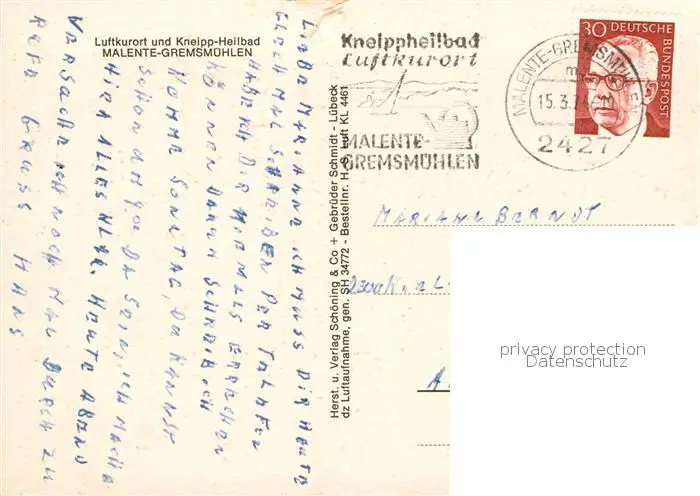 Luftkurort und Kneipp-Heilbad
MALENTE-GREMSMÜHLEN
LIEBE MARIANN ICH MUSS DIR HEUTE
GLEICH MAL SCHREIBEN PER TELEFON
HABE ICH DIR NIEMALS ERREICHEN
KÖNNEN DARUM SCHREIB ICH
KOMME SONNTAG, DA KANNST
SCHON DA SEIN, ICH MACHE
HIER ALLES KLAR. HEUTE ABEND
VERSUCHE ICH NOCH MAL DURCH ZU
RUFEN GRUSS HANS
Herst. u. Verlag Schöning & Co + Gebrüder Schmidt - Lübeck
dz Luftaufnahme, gen. SH 34772 - Bestellnr. Luft KL 4461
Kneippheilbad
Luftkurort
MALENTE-
GREMSMÜHLEN
MALENTE-GREMSMÜHLEN
15.3.74
2427
30 DEUTSCHE
BUNDESPOST
MARIANN BERNDT
privacy protection
Datenschutz